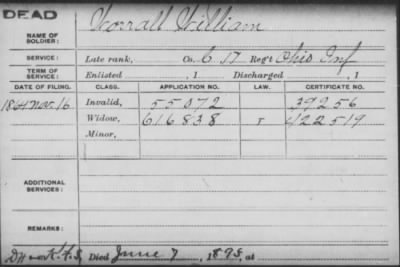 DEAD
Worrall William
NAME OF SOLDIER:
SERVICE: Late rank, Co. G 17 Reg't Ohio Inf
TERM OF SERVICE: Enlisted , 1 Discharged , 1
DATE OF FILING. CLASS. APPLICATION NO. LAW. CERTIFICATE NO.
1864 Nov. 16 Invalid, 55072 39256
Widow, 616838 422519
Minor,
ADDITIONAL SERVICES:
REMARKS:
Died June 7, 1895, at